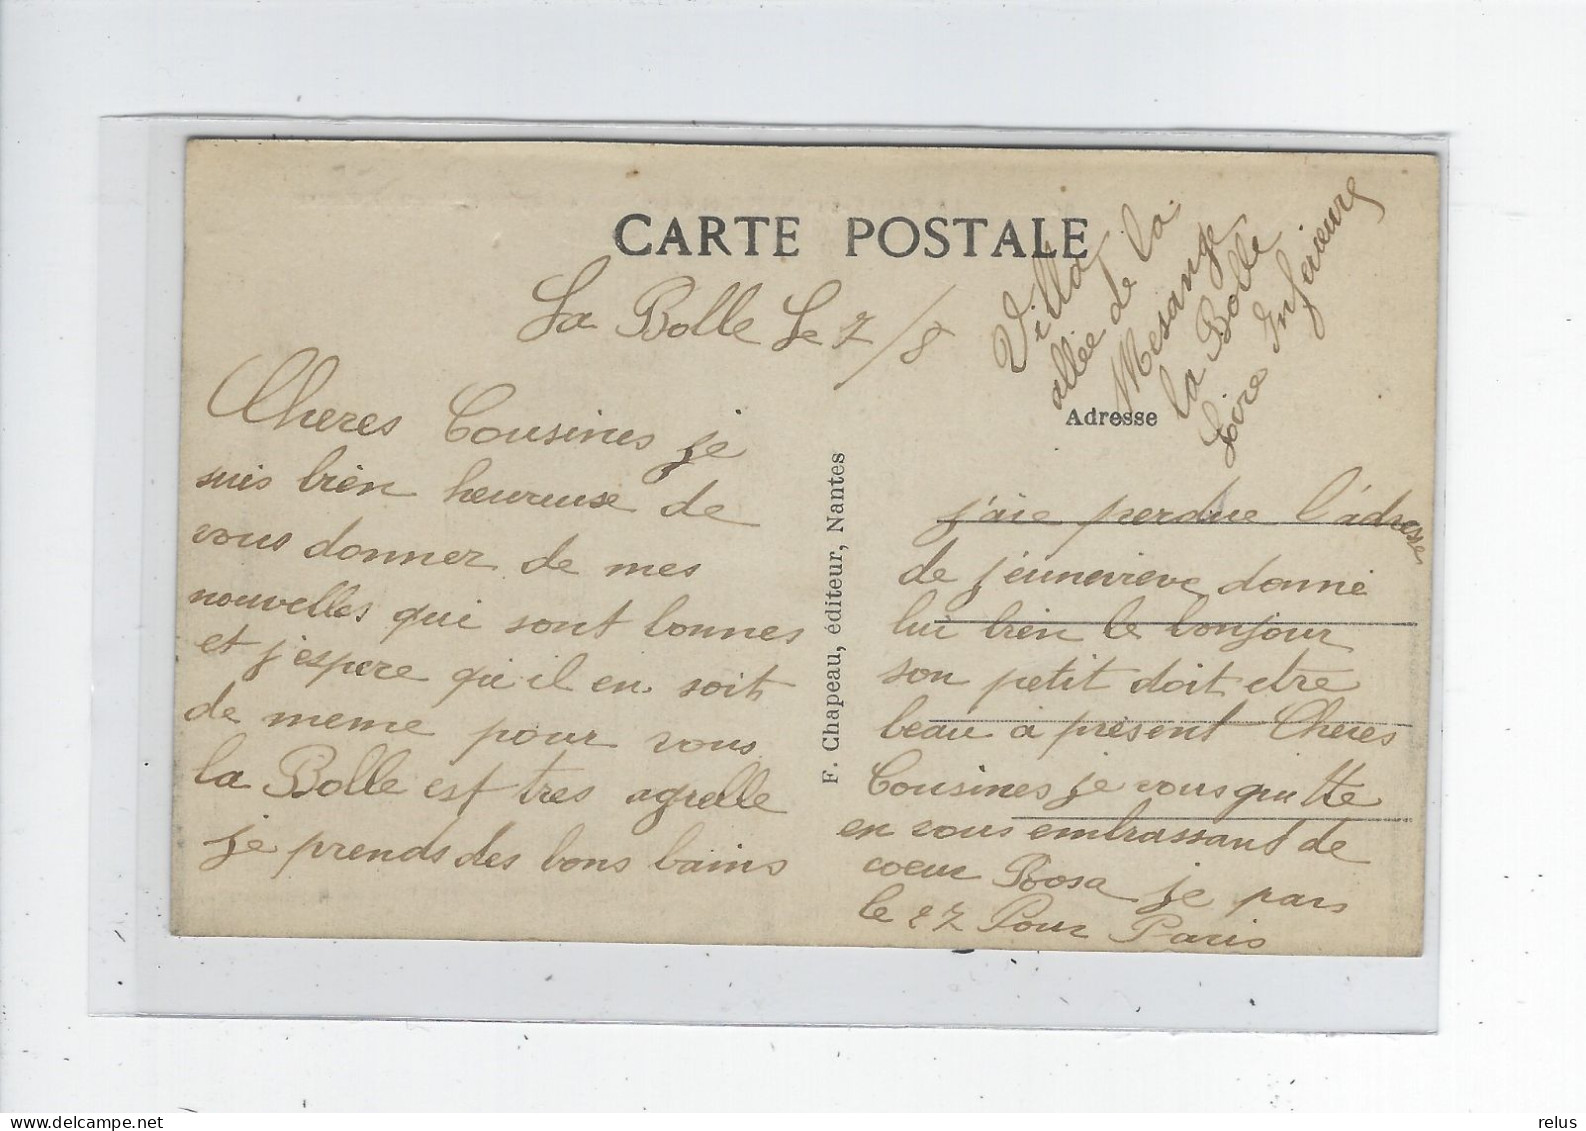 CARTE POSTALE
La Bolle Le 7/8
Cheres Cousines je
suis bien heureuse de
vous donner de mes
nouvelles qui sont bonnes
et j'espere qu'il en soit
de meme pour vous
la Bolle est tres agrelle
je prends des bons bains
F. Chapeau, éditeur, Nantes
Villa
allée de la
Mesange
la Bolle
Loire Inferieure
Adresse
j'aie perdue l'adresse
de jeunevieve donné
lui bien le bonjour
son petit doit etre
beau à présent Cheres
Cousines je vous quitte
en vous embrassant de
coeur Rosa je pars
le 27 Pour Paris
relus